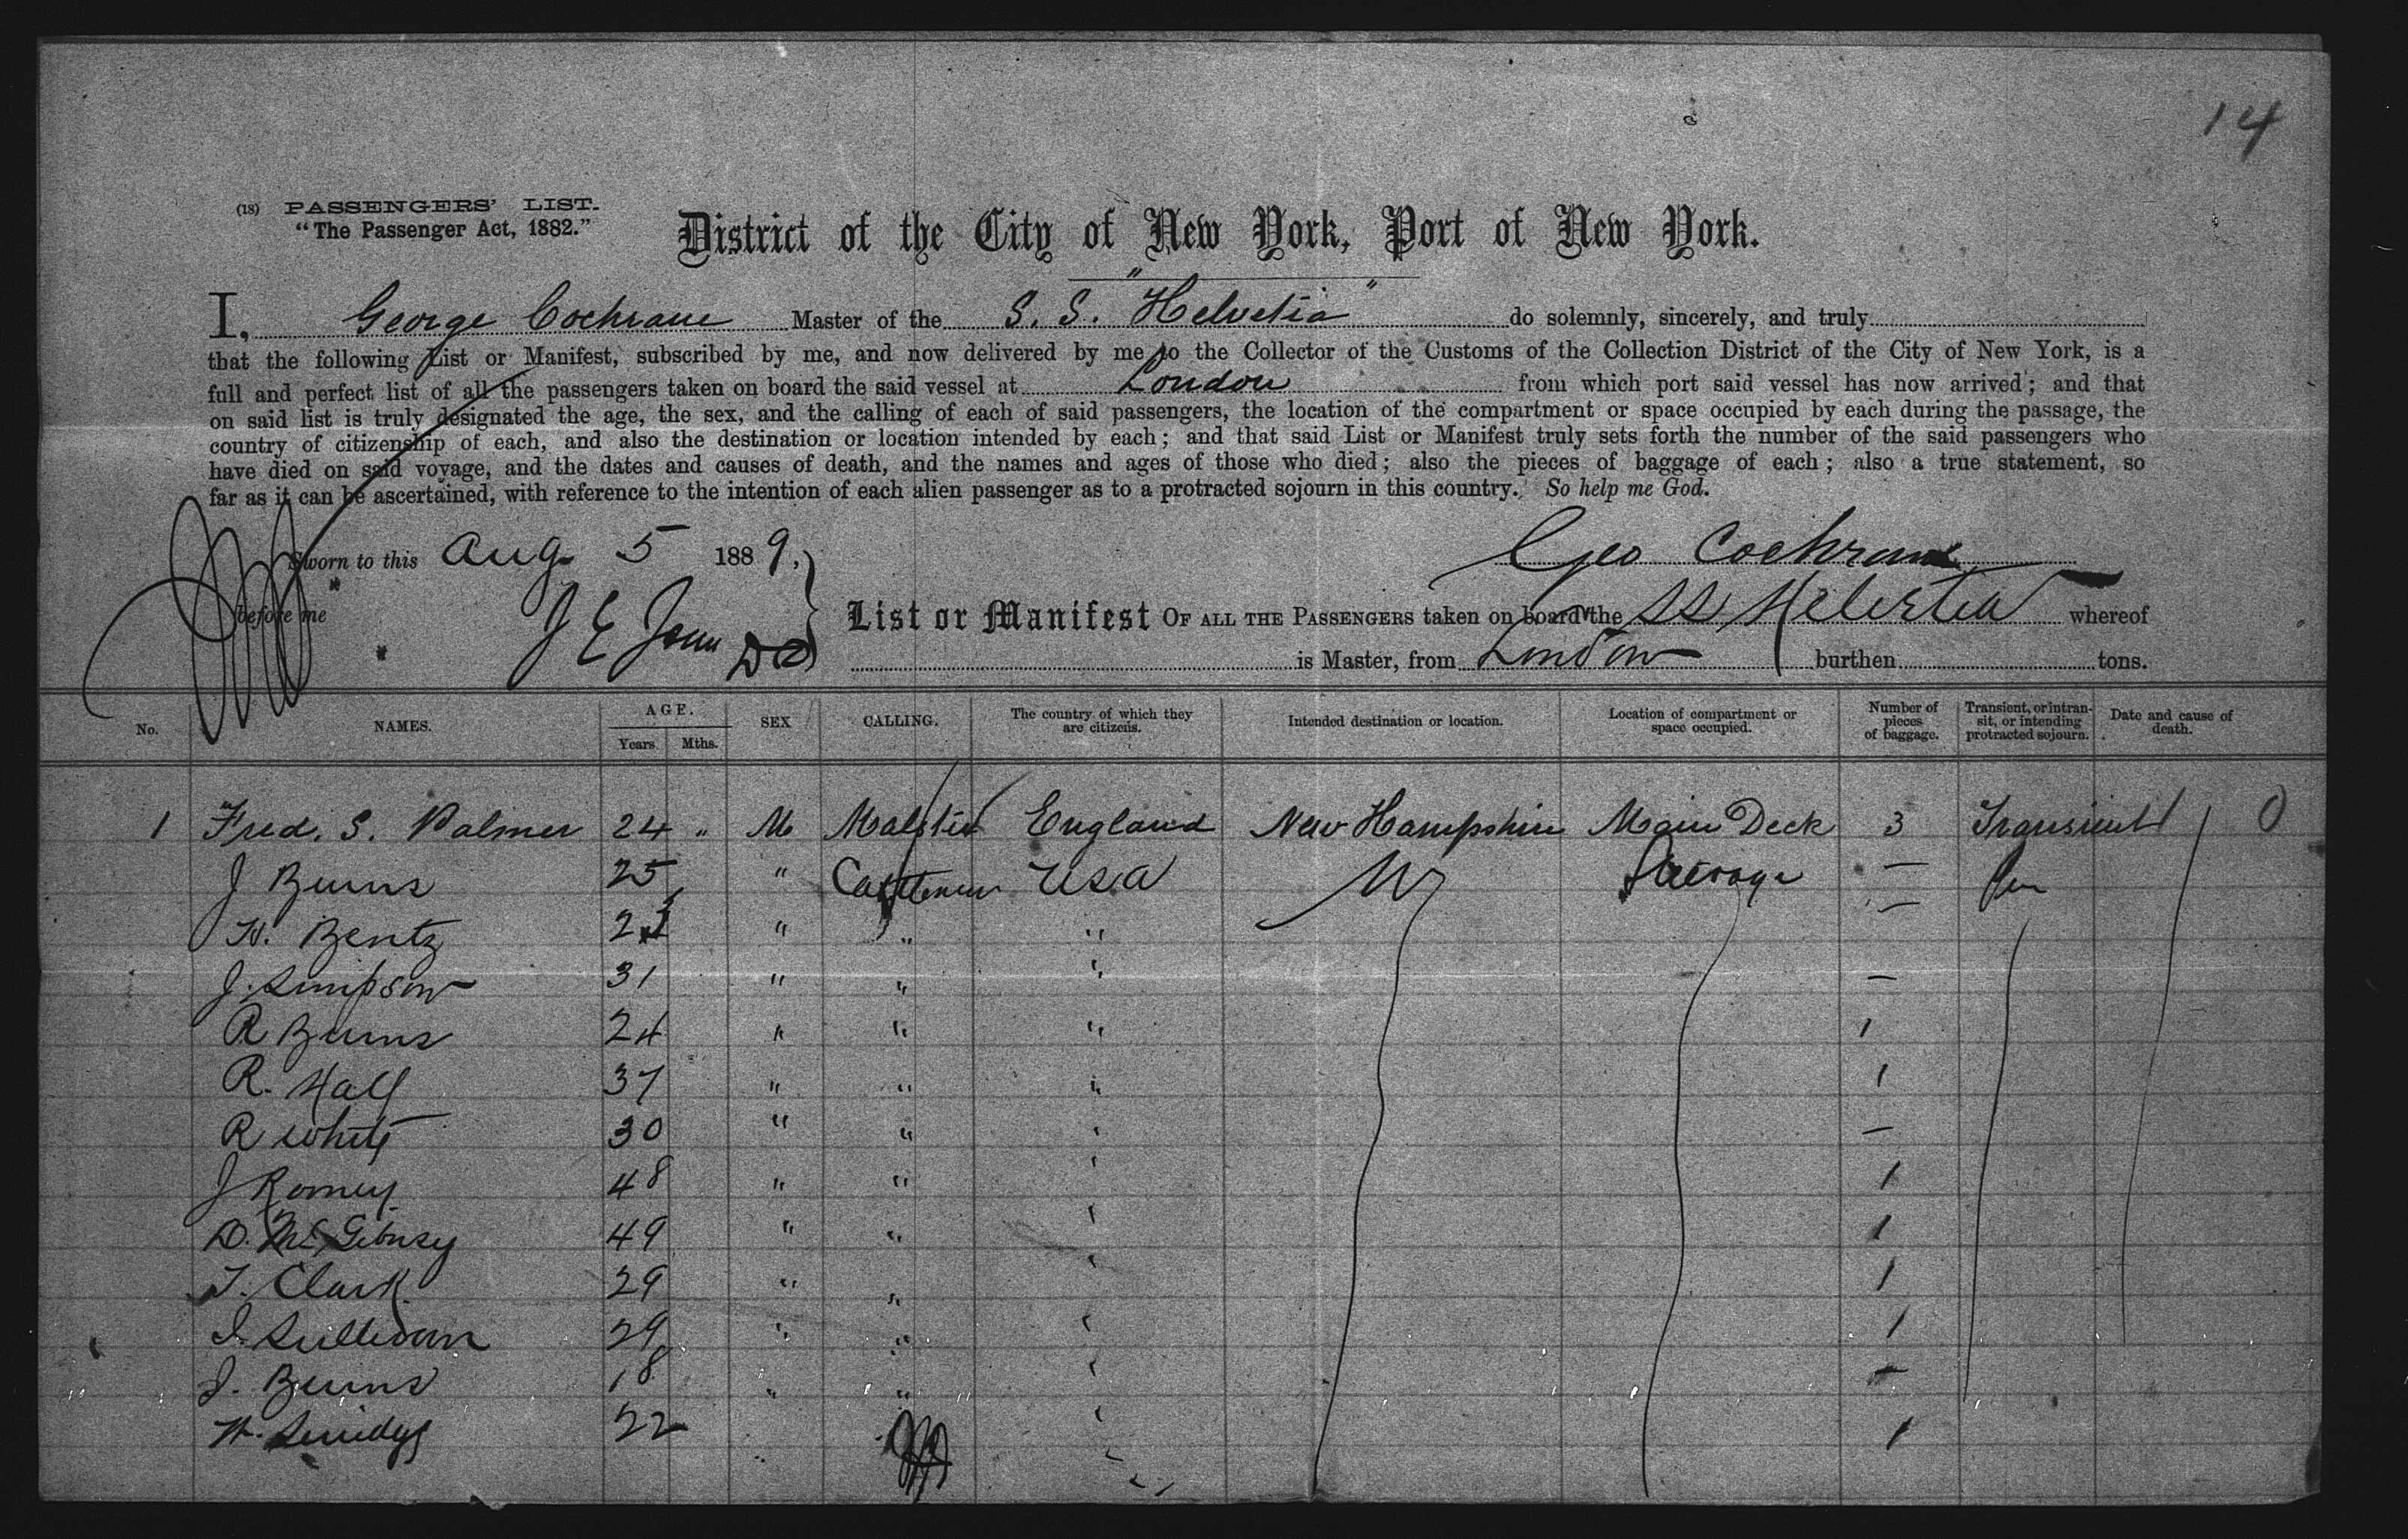 14
(18) PASSENGERS' LIST.
"The Passenger Act, 1882."
District of the City of New York, Port of New York.
I, George Cochrane Master of the S. S. "Helvetia" do solemnly, sincerely, and truly
that the following List or Manifest, subscribed by me, and now delivered by me to the Collector of the Customs of the Collection District of the City of New York, is a
full and perfect list of all the passengers taken on board the said vessel at London from which port said vessel has now arrived; and that
on said list is truly designated the age, the sex, and the calling of each of said passengers, the location of the compartment or space occupied by each during the passage, the
country of citizenship of each, and also the destination or location intended by each; and that said List or Manifest truly sets forth the number of the said passengers who
have died on said voyage, and the dates and causes of death, and the names and ages of those who died; also the pieces of baggage of each; also a true statement, so
far as it can be ascertained, with reference to the intention of each alien passenger as to a protracted sojourn in this country. So help me God.
Sworn to this Aug 5 1889, Geo Cochrane
before me J E
List or Manifest OF ALL THE PASSENGERS taken on board the SS Helvetia whereof
is Master, from London burthen tons.
No. NAMES. AGE. Years. Mths. SEX CALLING. The country of which they are citizens. Intended destination or location. Location of compartment or space occupied. Number of pieces of baggage. Transient, or in transit, or intending protracted sojourn. Date and cause of death.
1 Fred. S. Palmer 24 " M Malster England New Hampshire Main Deck 3 Transient 0
J Burns 25 " Cattleman USA NY Steerage —
H. Bentz 23 " " " —
J. Simpson 31 " " " —
R Burns 24 " " " 1
R. Hall 37 " " " 1
R White 30 " " " —
J Romey 48 " " " 1
D. McGibney 49 " " " 1
T. Clark 29 " " " 1
J. Sullivan 29 " " " 1
J. Burns 18 " " " —
H. 22 " " 1